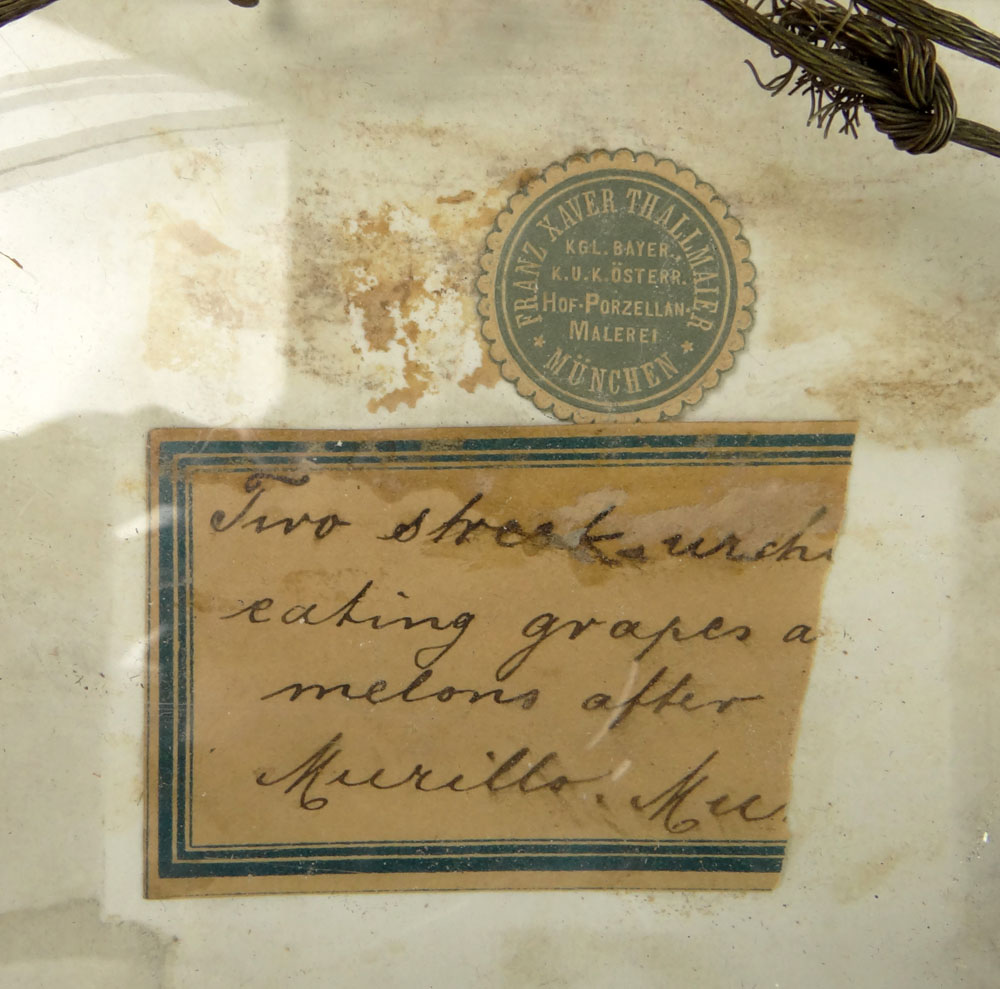 FRANZ XAVER THALLMAIER
KGL. BAYER.
K.U.K. ÖSTERR.
HOF-PORZELLAN-
MALEREI
★ MÜNCHEN ★
Two street urchi
eating grapes a
melons after
Murillo. Mu